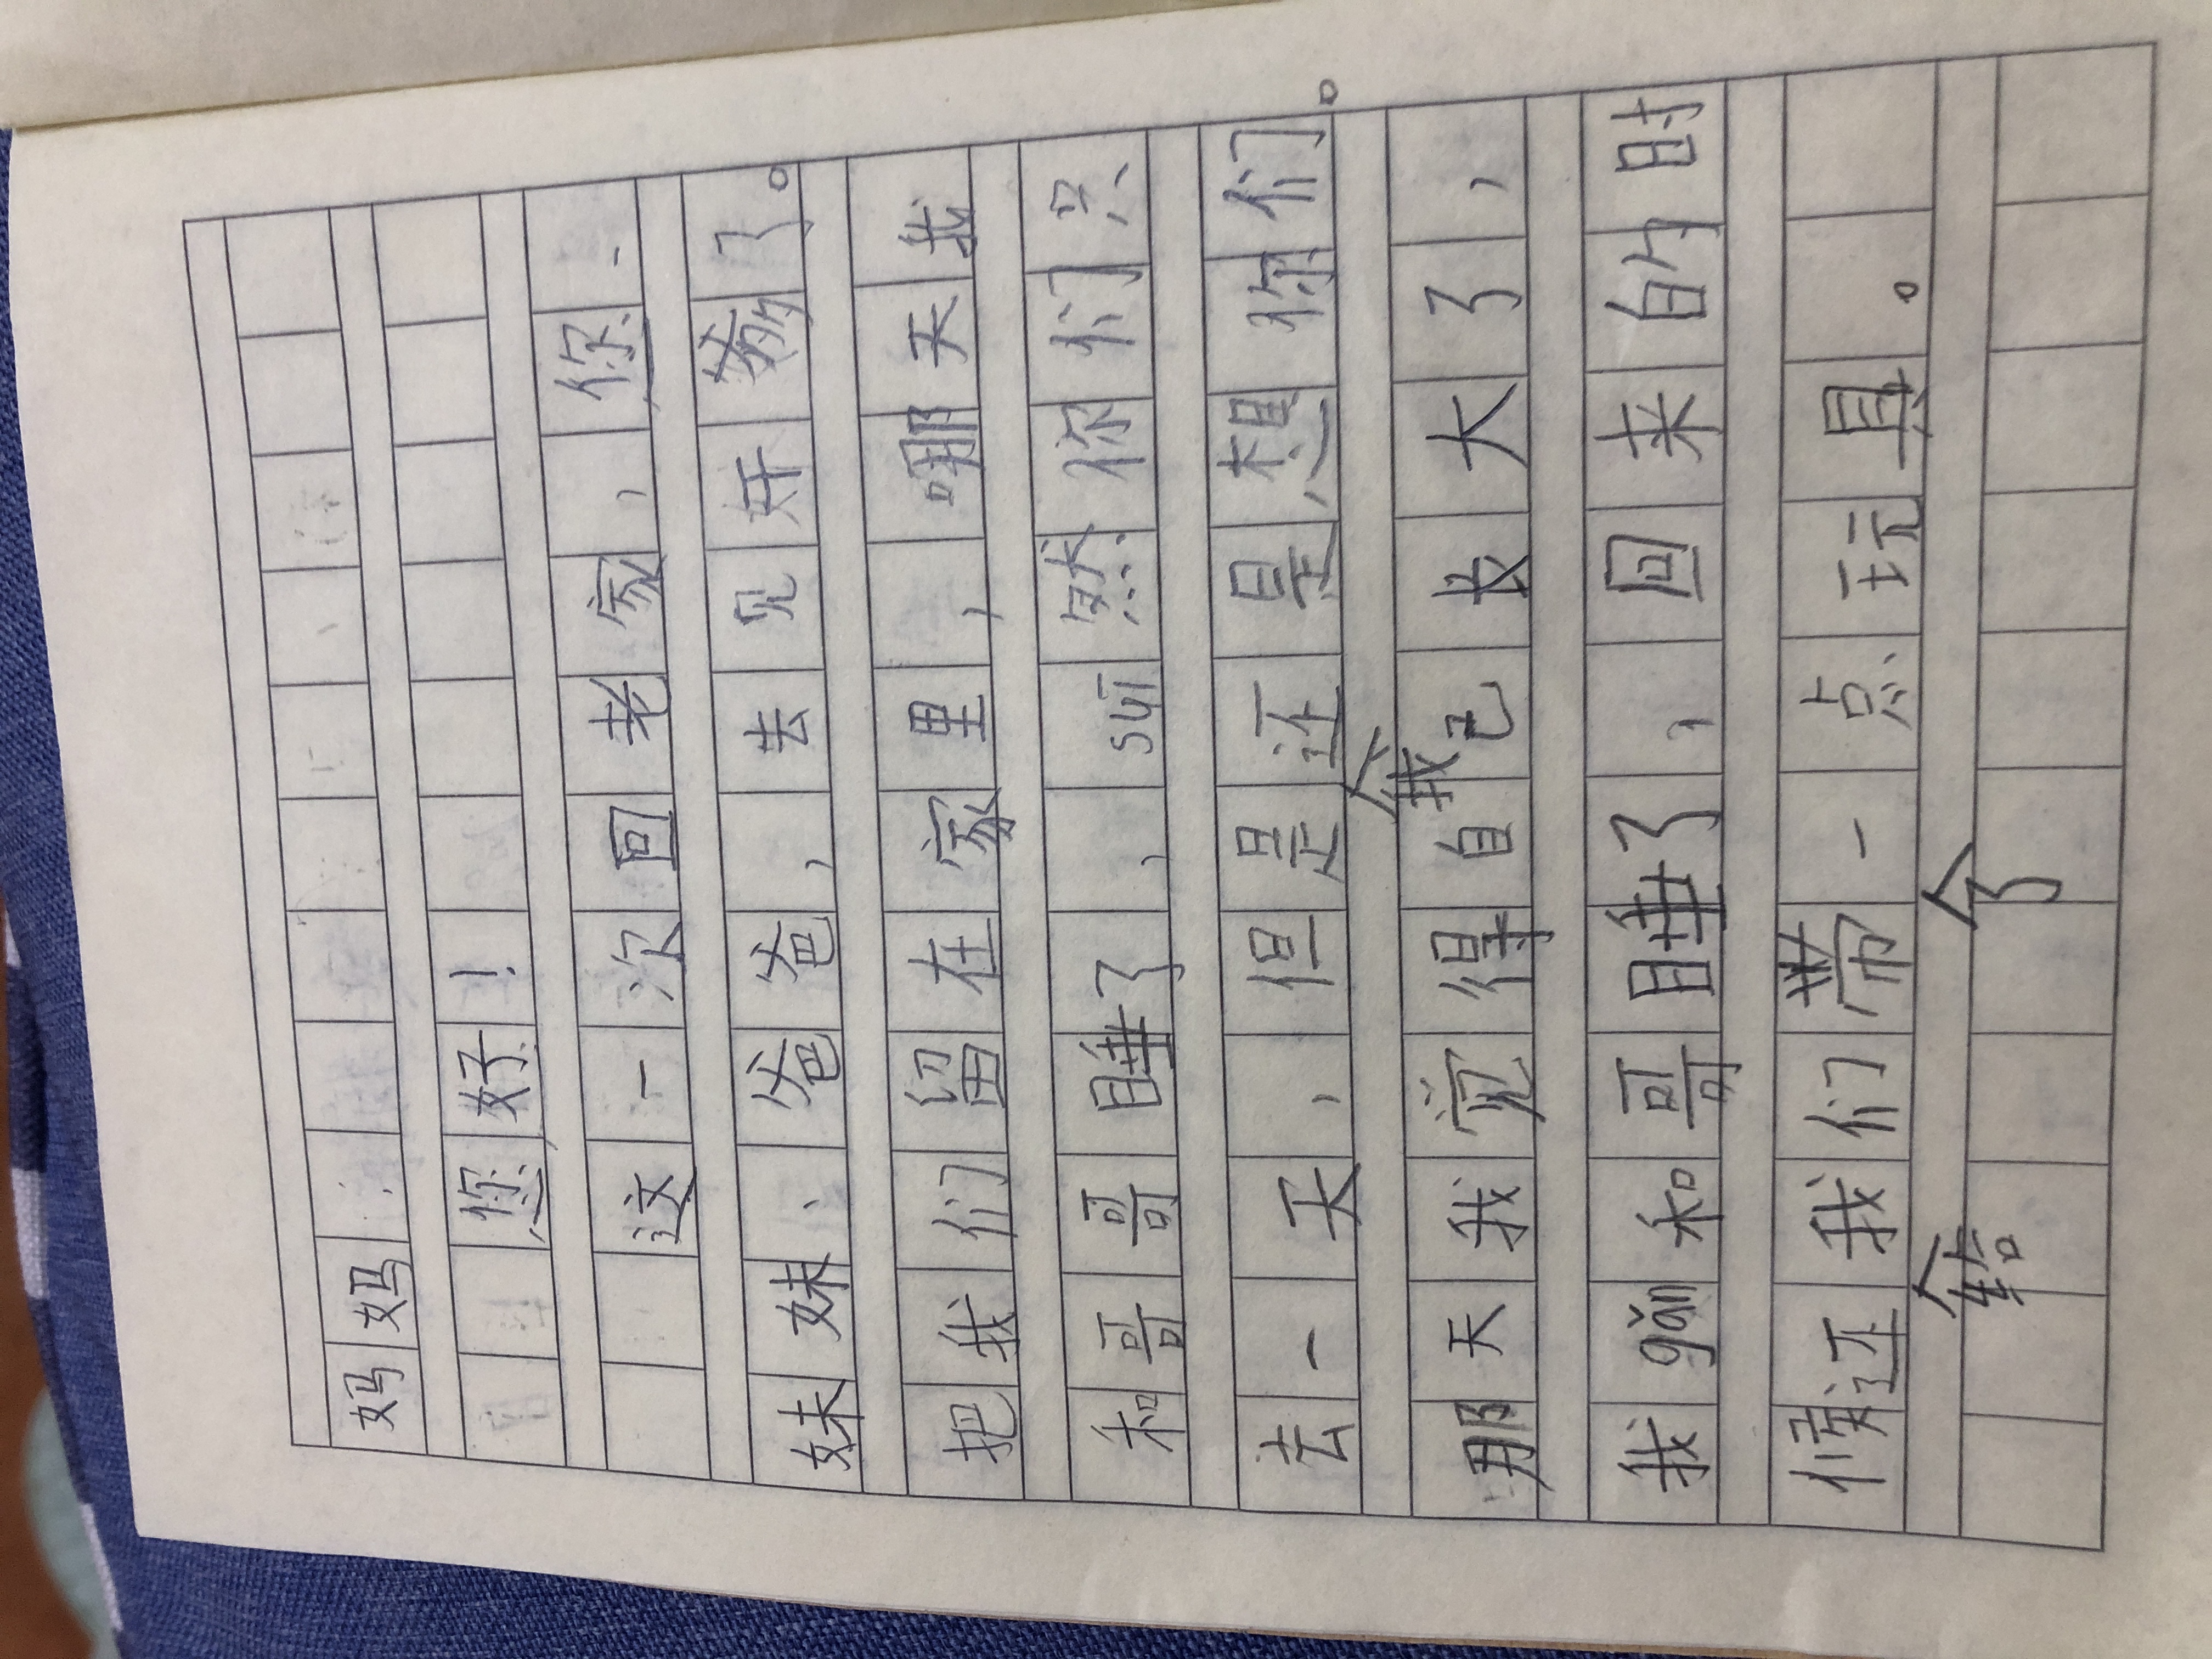 妈妈：
您好！
这一次回老家，你、
妹妹、爸爸，去见奸爹了。
把我们留在家里，哪天我
和哥哥睡了，suī然你们只
去一天，但是还是想你们。
那天我觉得自我己长大了，
我gǎn和哥睡了，回来的时
候还给我们带了一点玩具。